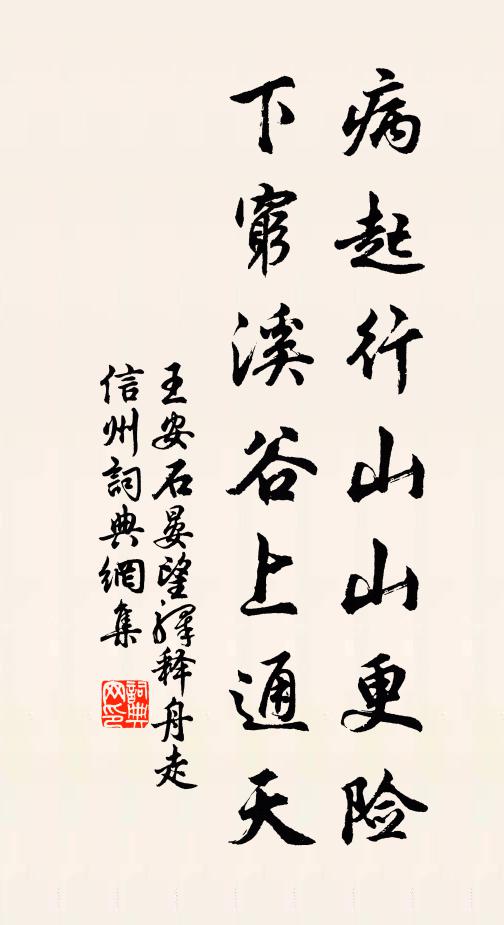 病起行山山更险
下窮溪谷上通天
王安石晏望驿释舟走
信州詞典網集
詞典网印